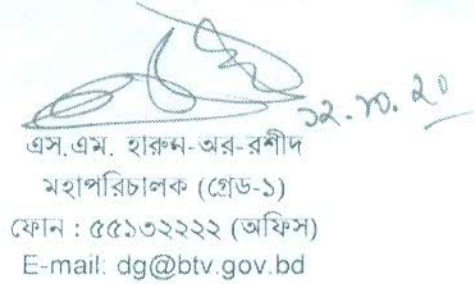 ১২.১০.২০
এস.এম. হারুন-অর-রশীদ
মহাপরিচালক (গ্রেড-১)
ফোন : ৫৫১৩২২২২ (অফিস)
E-mail: dg@btv.gov.bd